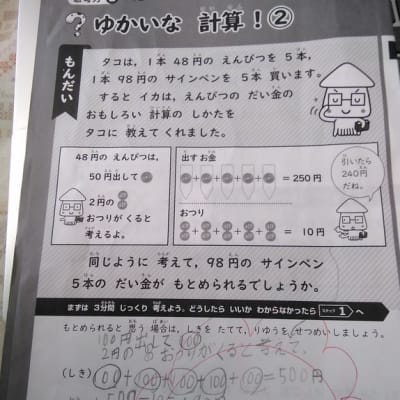 ゆかいな 計算！②
もんだい
タコは，1本 48円の えんぴつを 5本，
1本 98円の サインペンを 5本 買います。
すると イカは，えんぴつの だい金の
おもしろい 計算の しかたを
タコに 教えて くれました。
48円の えんぴつは，
50円出して
2円の
おつりが くると
考えるよ。
出す お金
＋ ＋ ＋ ＋ ＝250円
おつり
＋ ＋ ＋ ＋ ＝ 10円
引いたら
240円
だね。
同じように 考えて，98円の サインペン
5本の だい金が もとめられるでしょうか。
まずは 3分間 じっくり 考えよう。どうしたら いいか わからなかったら ステップ 1 へ
もとめられると 思う 場合は，しきを たてて，りゆうを せつめいしましょう。
100円出して 100
2円の おつりがくると考えて、
(しき) 100＋100＋100＋100＋100＝500円